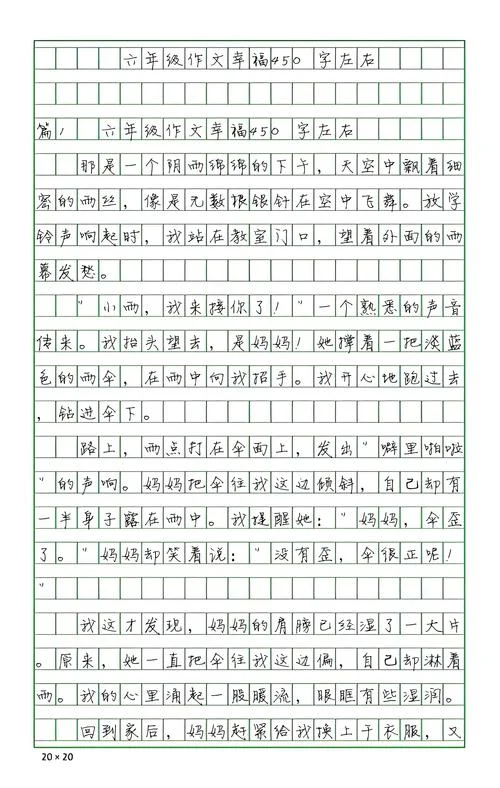 六年级作文幸福450 字左右
篇1 六年级作文幸福450 字左右
那是一个阴雨绵绵的下午，天空中飘着细
密的雨丝，像是无数根银针在空中飞舞。放学
铃声响起时，我站在教室门口，望着外面的雨
幕发愁。
"小雨，我来接你了！"一个熟悉的声音
传来。我抬头望去，是妈妈！她撑着一把淡蓝
色的雨伞，在雨中向我招手。我开心地跑过去
，钻进伞下。
路上，雨点打在伞面上，发出"噼里啪啦
"的声响。妈妈把伞往我这边倾斜，自己却有
一半身子露在雨中。我提醒她："妈妈，伞歪
了。"妈妈却笑着说："没有歪，伞很正呢！
"
我这才发现，妈妈的肩膀已经湿了一大片
。原来，她一直把伞往我这边偏，自己却淋着
雨。我的心里涌起一股暖流，眼眶有些湿润。
回到家后，妈妈赶紧给我换上干衣服，又
20×20